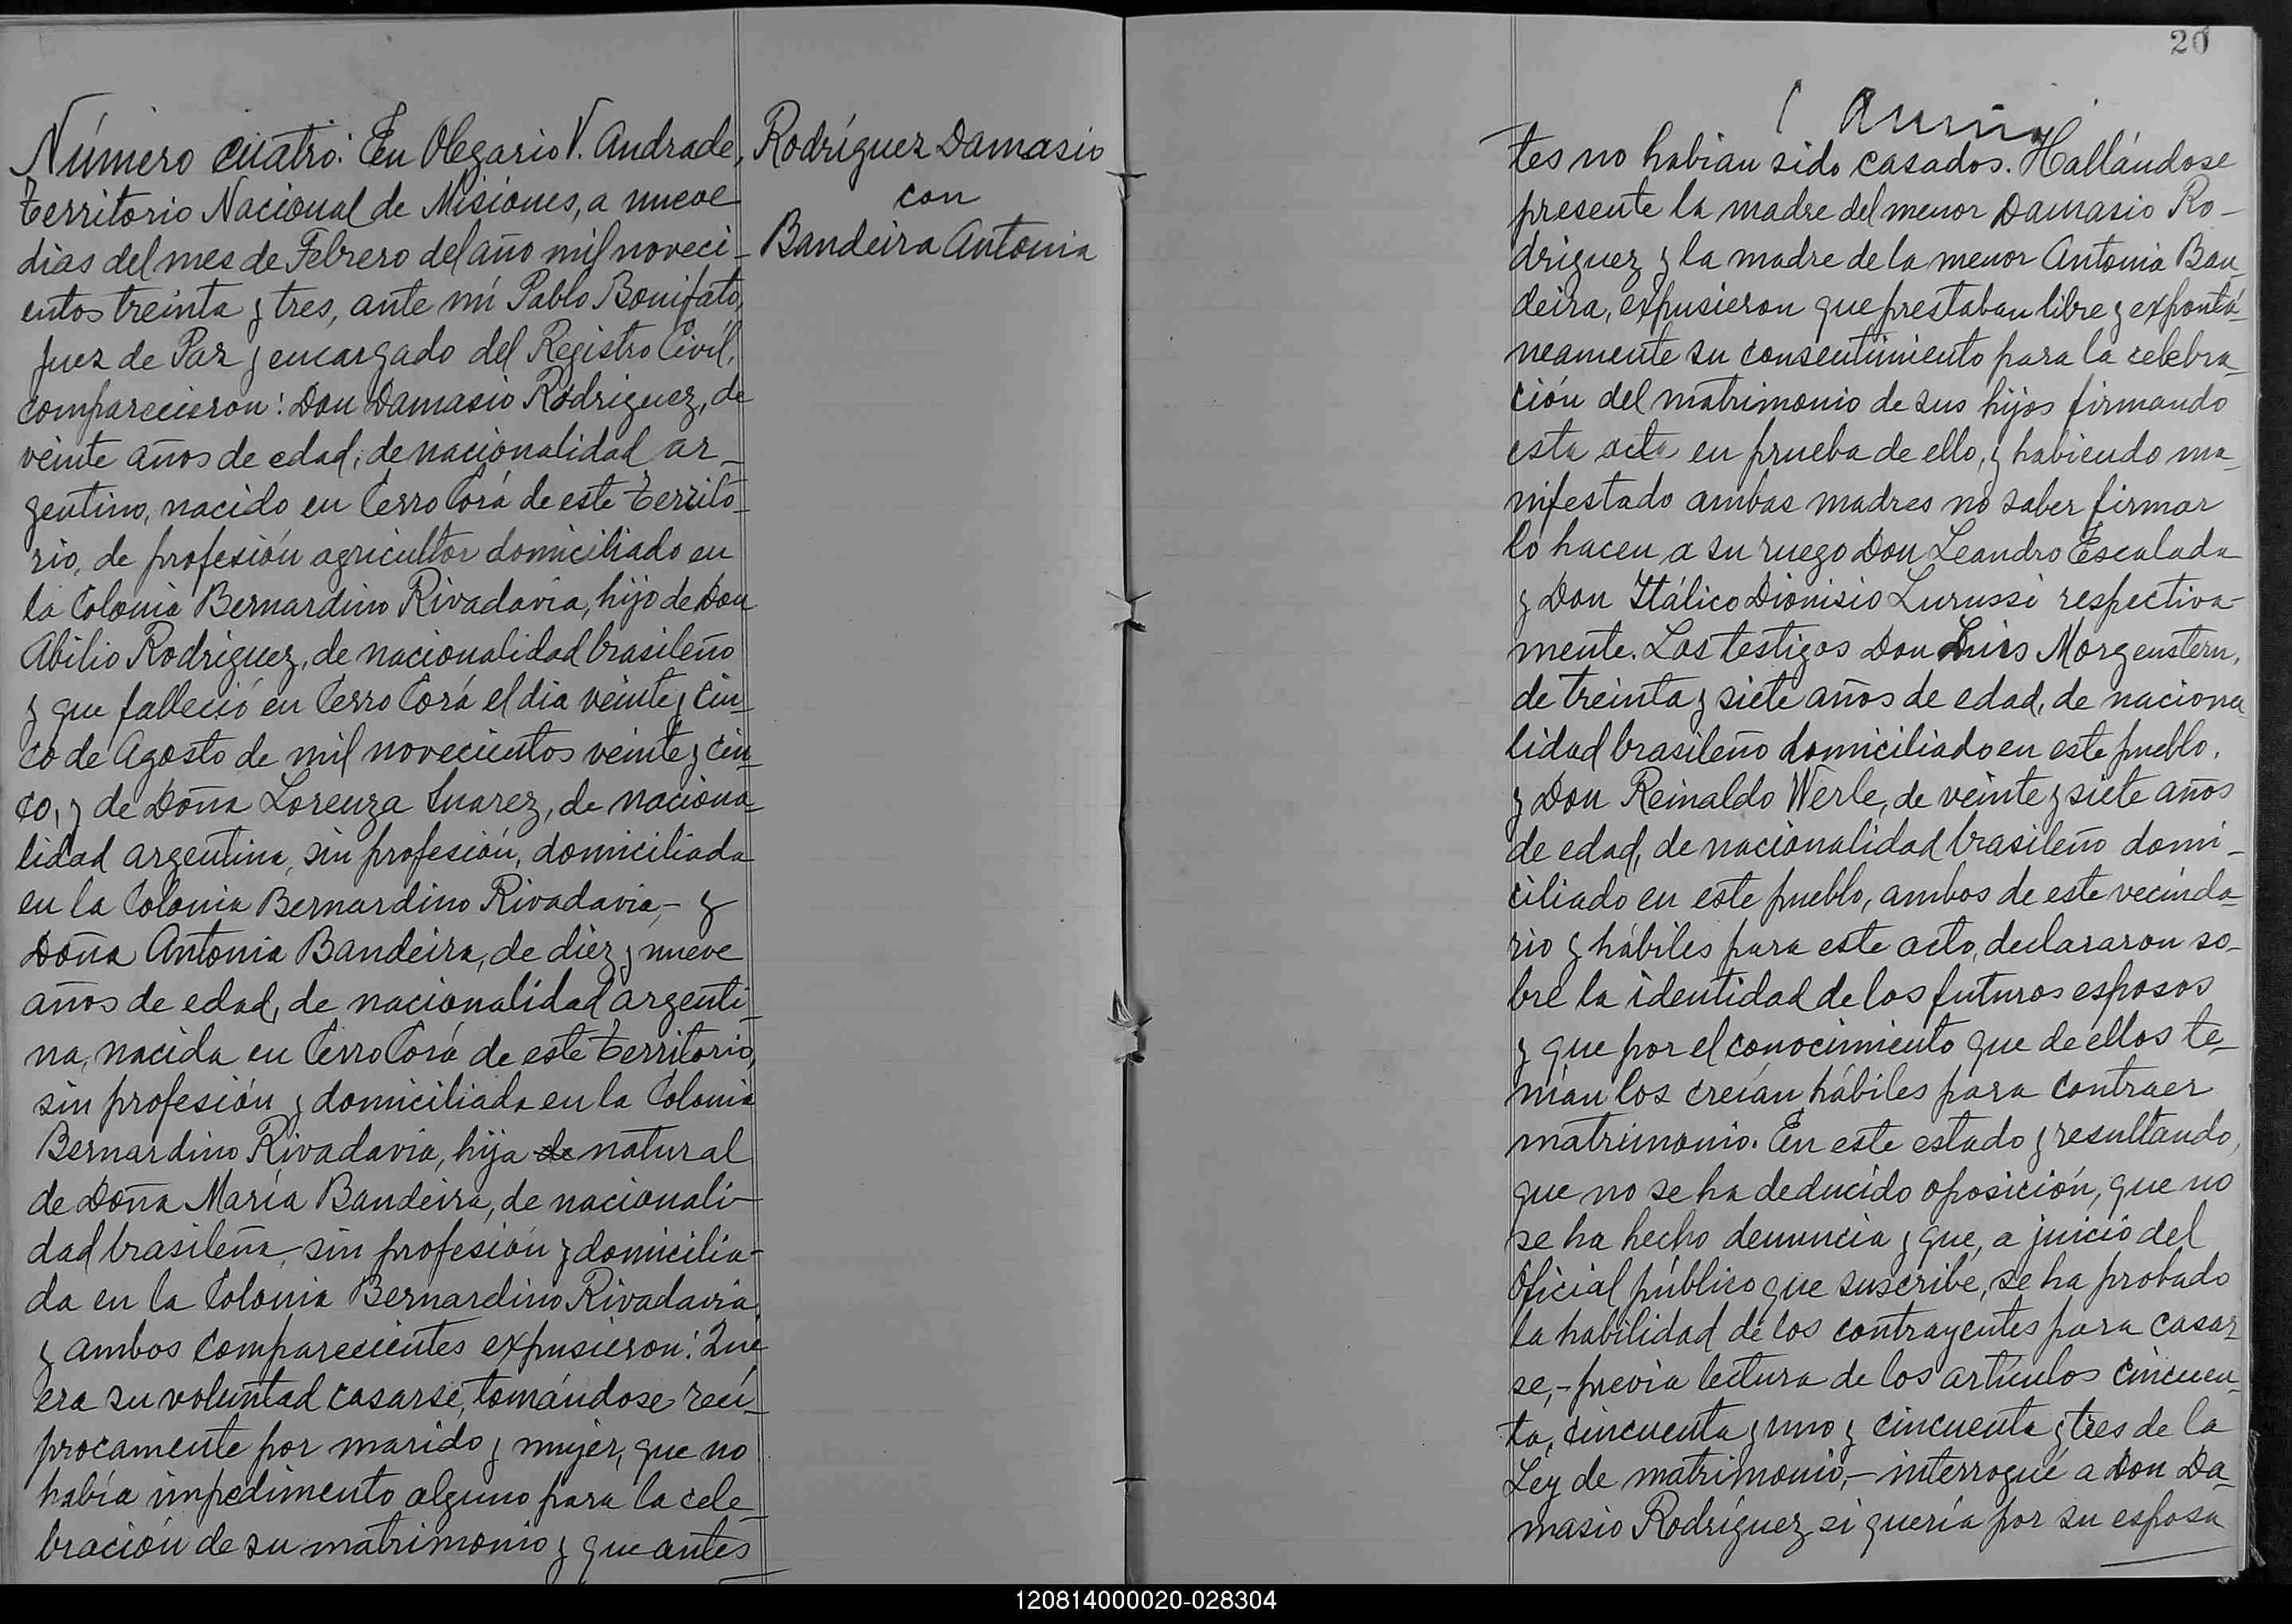 Número cuatro: En Olegario V. Andrade,
Territorio Nacional de Misiones, a nueve
dias del mes de Febrero del año mil noveci-
entos treinta y tres, ante mí Pablo Bonifato,
Juez de Paz y encargado del Registro Civíl,
comparecieron: Don Damasio Rodriguez, de
veinte años de edad, de nacionalidad ar-
gentino, nacido en Cerro Corá de este Territo-
rio, de profesión agricultor domiciliado en
la Colonia Bernardino Rivadavia, hijo de Don
Abilio Rodriguez, de nacionalidad brasileño
y que falleció en Cerro Corá el dia veinte y cin-
co de Agosto de mil novecientos veinte y cin-
co, y de Doña Lorenza Suarez, de naciona-
lidad argentina, sin profesión, domiciliada
en la Colonia Bernardino Rivadavia,- y
Doña Antonia Bandeira, de diez y nueve
años de edad, de nacionalidad argenti-
na, nacida en Cerro Corá de este Territorio,
sin profesión y domiciliada en la Colonia
Bernardino Rivadavia, hija de natural
de Doña María Bandeira, de nacionali-
dad brasileña, sin profesión y domicilia-
da en la Colonia Bernardino Rivadavia,
y ambos comparecientes expusieron: Que
era su voluntad casarse, tomándose recí-
procamente por marido y mujer, que no
había impedimento alguno para la cele-
bración de su matrimonio y que antes
Rodríguez Damasio
con
Bandeira Antonia
20
tes no habian sido casados. Hallándose
presente la madre del menor Damasio Ro-
driguez y la madre de la menor Antonia Ban-
deira, expusieron que prestaban libre y expontá-
neamente su consentimiento para la celebra-
ción del matrimonio de sus hijos firmando
esta acta en prueba de ello, y habiendo ma-
nifestado ambas madres no saber firmar
lo hacen a su ruego Don Leandro Escalada
y Don Itálico Dionisio Lurussi respectiva-
mente. Los testigos Don Luis Morgenstern,
de treinta y siete años de edad, de naciona-
lidad brasileño domiciliado en este pueblo,
y Don Reinaldo Werle, de veinte y siete años
de edad, de nacionalidad brasileño domi-
ciliado en este pueblo, ambos de este vecinda-
rio y hábiles para este acto, declararon so-
bre la identidad de los futuros esposos
y que por el conocimiento que de ellos te-
nían los creían hábiles para contraer
matrimonio. En este estado y resultando,
que no se ha deducido oposición, que no
se ha hecho denuncia y que, a juicio del
Oficial público que suscribe, se ha probado
la habilidad de los contrayentes para casar-
se,- previa lectura de los artículos cincuen-
ta, cincuenta y uno y cincuenta y tres de la
Ley de matrimonio,- interrogué a Don Da-
masio Rodríguez si quería por su esposa
120814000020-028304